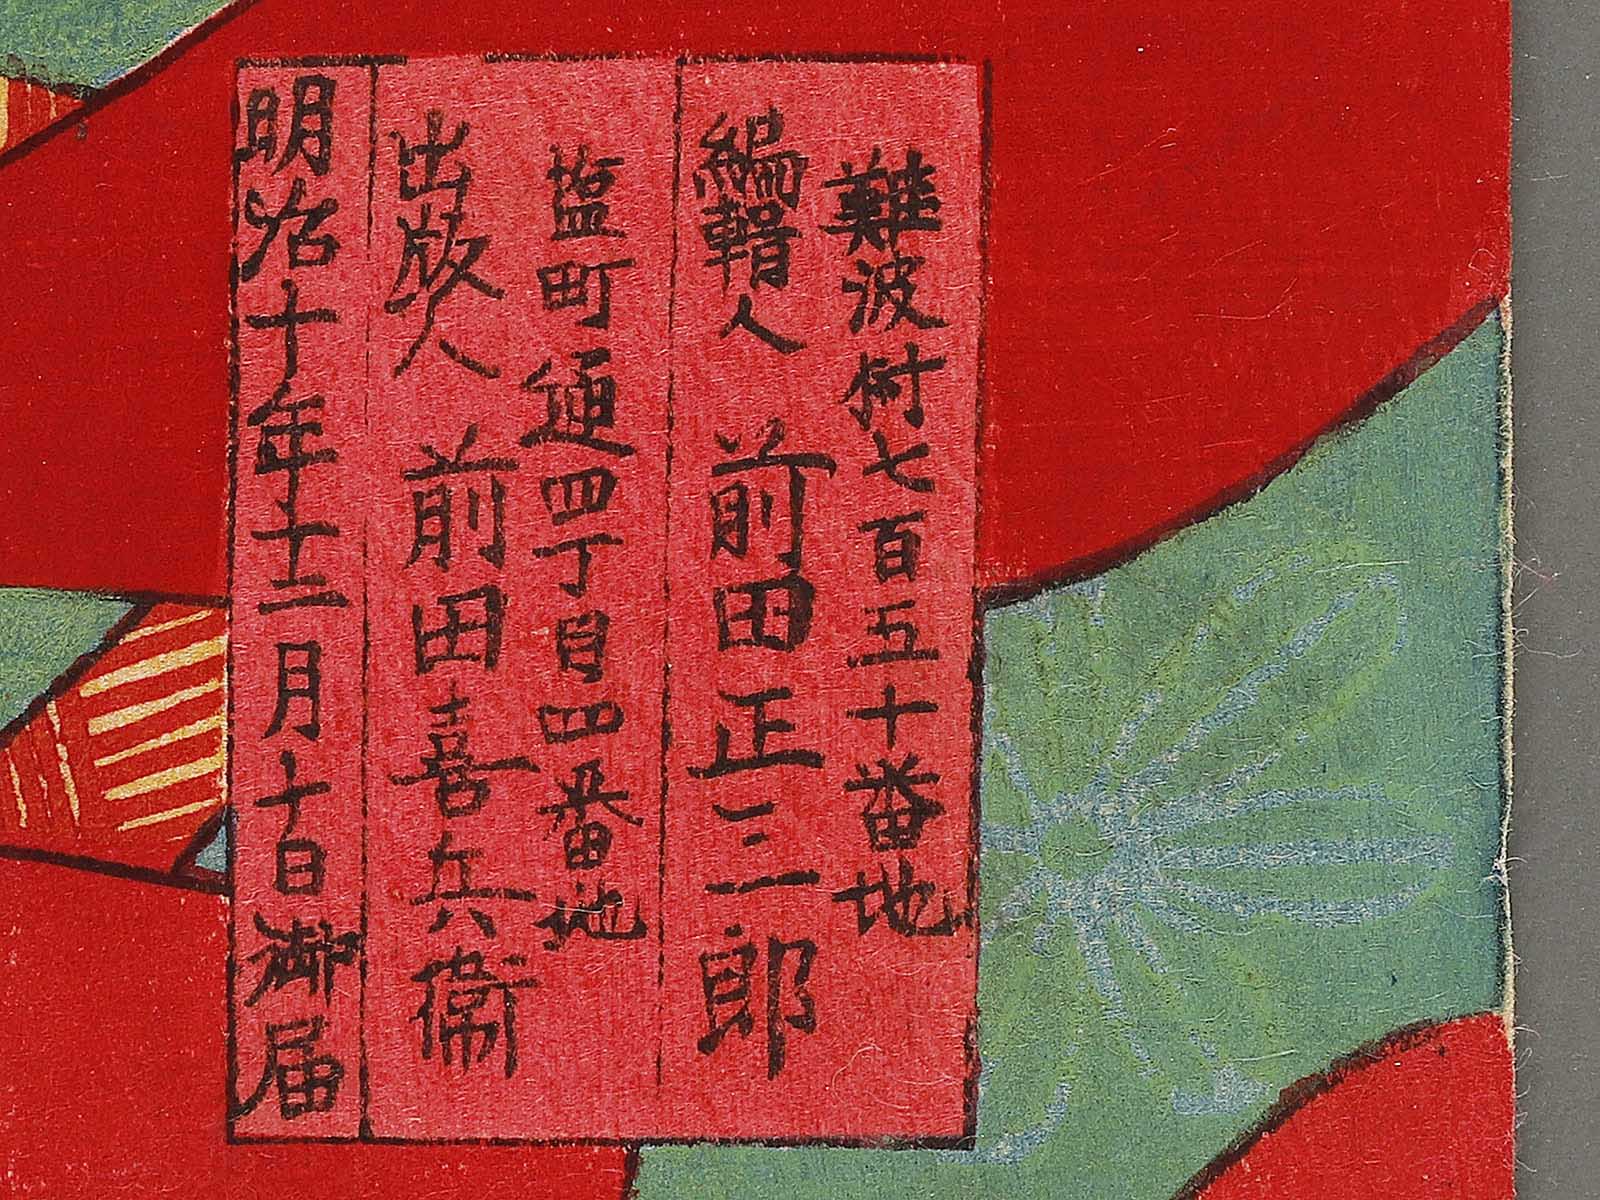 難波村七百五十番地
編輯人 前田正三郎
塩町通四丁目四番地
出版人 前田喜兵衛
明治十年十二月十日御届